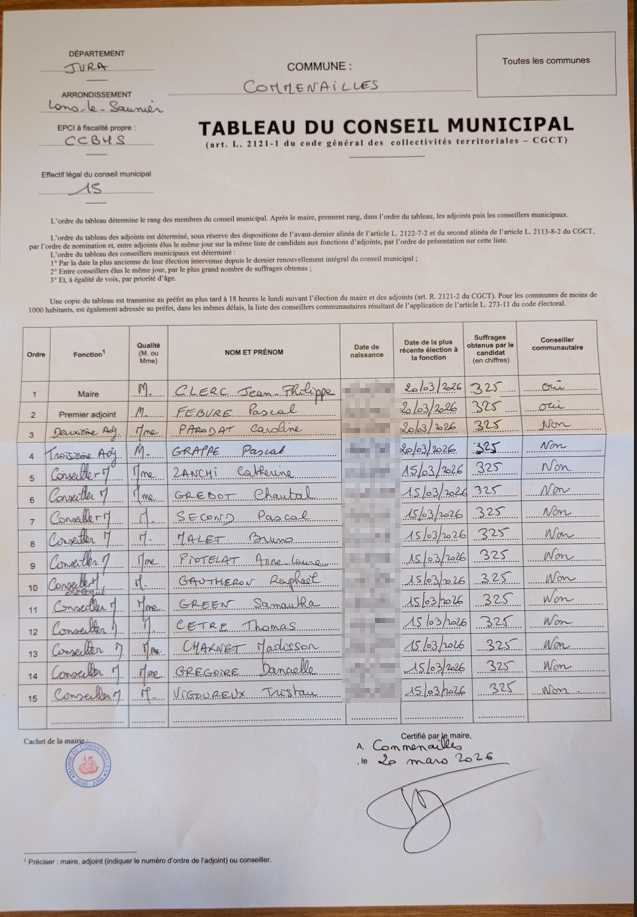 DÉPARTEMENT
JURA
ARRONDISSEMENT
Lons-le-Saunier
EPCI à fiscalité propre :
CCBHS
Effectif légal du conseil municipal
15
COMMUNE :
COMMENAILLES
Toutes les communes
TABLEAU DU CONSEIL MUNICIPAL
(art. L. 2121-1 du code général des collectivités territoriales – CGCT)
L'ordre du tableau détermine le rang des membres du conseil municipal. Après le maire, prennent rang, dans l'ordre du tableau, les adjoints puis les conseillers municipaux.
L'ordre du tableau des adjoints est déterminé, sous réserve des dispositions de l'avant-dernier alinéa de l'article L. 2122-7-2 et du second alinéa de l'article L. 2113-8-2 du CGCT,
par l'ordre de nomination et, entre adjoints élus le même jour sur la même liste de candidats aux fonctions d'adjoints, par l'ordre de présentation sur cette liste.
L'ordre du tableau des conseillers municipaux est déterminé :
1° Par la date la plus ancienne de leur élection intervenue depuis le dernier renouvellement intégral du conseil municipal ;
2° Entre conseillers élus le même jour, par le plus grand nombre de suffrages obtenus ;
3° Et, à égalité de voix, par priorité d'âge.
Une copie du tableau est transmise au préfet au plus tard à 18 heures le lundi suivant l'élection du maire et des adjoints (art. R. 2121-2 du CGCT). Pour les communes de moins de
1000 habitants, est également adressée au préfet, dans les mêmes délais, la liste des conseillers communautaires résultant de l'application de l'article L. 273-11 du code électoral.
Ordre Fonction¹ Qualité (M. ou Mme) NOM ET PRÉNOM Date de naissance Date de la plus récente élection à la fonction Suffrages obtenus par le candidat (en chiffres) Conseiller communautaire
1 Maire M. CLERC Jean-Philippe 20/03/2026 325 oui
2 Premier adjoint M. FEBURE Pascal 20/03/2026 325 oui
3 Deuxième Adj Mme PARODAT Caroline 20/03/2026 325 Non
4 Troisième Adj M. GRAPPE Pascal 20/03/2026 325 Non
5 Conseiller M Mme ZANCHI Catherine 15/03/2026 325 Non
6 Conseiller M Mme GREBOT Chantal 15/03/2026 325 Non
7 Conseiller M M. SECOND Pascal 15/03/2026 325 Non
8 Conseiller M M. MALET Bruno 15/03/2026 325 Non
9 Conseiller M Mme PIOTELAT Anne-Laure 15/03/2026 325 Non
10 Conseiller M M. GAUTHERON Raphaël 15/03/2026 325 Non
11 Conseiller M Mme GREEN Samantha 15/03/2026 325 Non
12 Conseiller M M. CETRE Thomas 15/03/2026 325 Non
13 Conseiller M Mme CHARNET Madisson 15/03/2026 325 Non
14 Conseiller M Mme GREGOIRE Danielle 15/03/2026 325 Non
15 Conseiller M M. VIGOUREUX Tristan 15/03/2026 325 Non
Cachet de la mairie :
Certifié par le maire,
A Commenailles
, le 20 mars 2026
¹ Préciser : maire, adjoint (indiquer le numéro d'ordre de l'adjoint) ou conseiller.